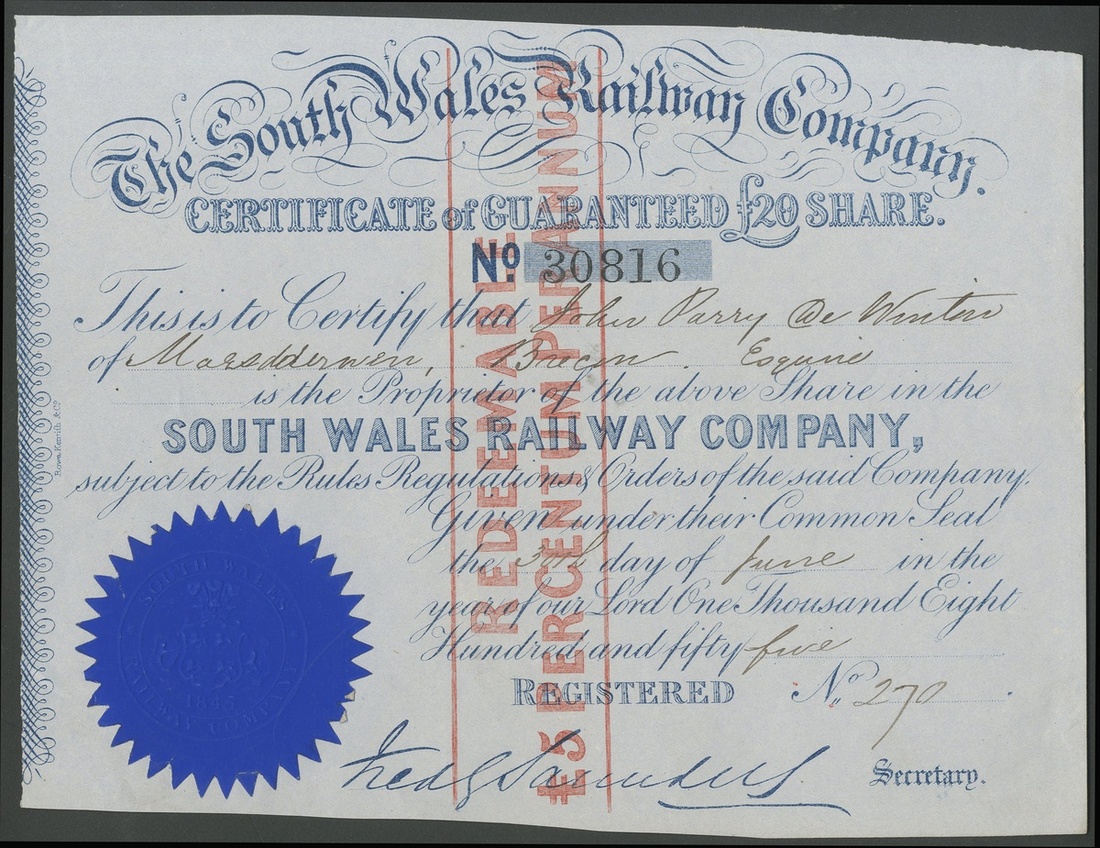 The South Wales Railway Company.
CERTIFICATE of GUARANTEED £20 SHARE.
No. 30816
This is to Certify that John Parry De Winton
of Maesdderwen, Brecon. Esquire
is the Proprietor of the above Share in the
SOUTH WALES RAILWAY COMPANY,
subject to the Rules Regulations & Orders of the said Company.
Given under their Common Seal
the 30th day of June in the
year of our Lord One Thousand Eight
Hundred and fifty five
REGISTERED No. 270
Fred G Saunders
Secretary.
REDEEMABLE
£5 PER CENTUM PER ANNUM
SOUTH WALES
RAILWAY COMP